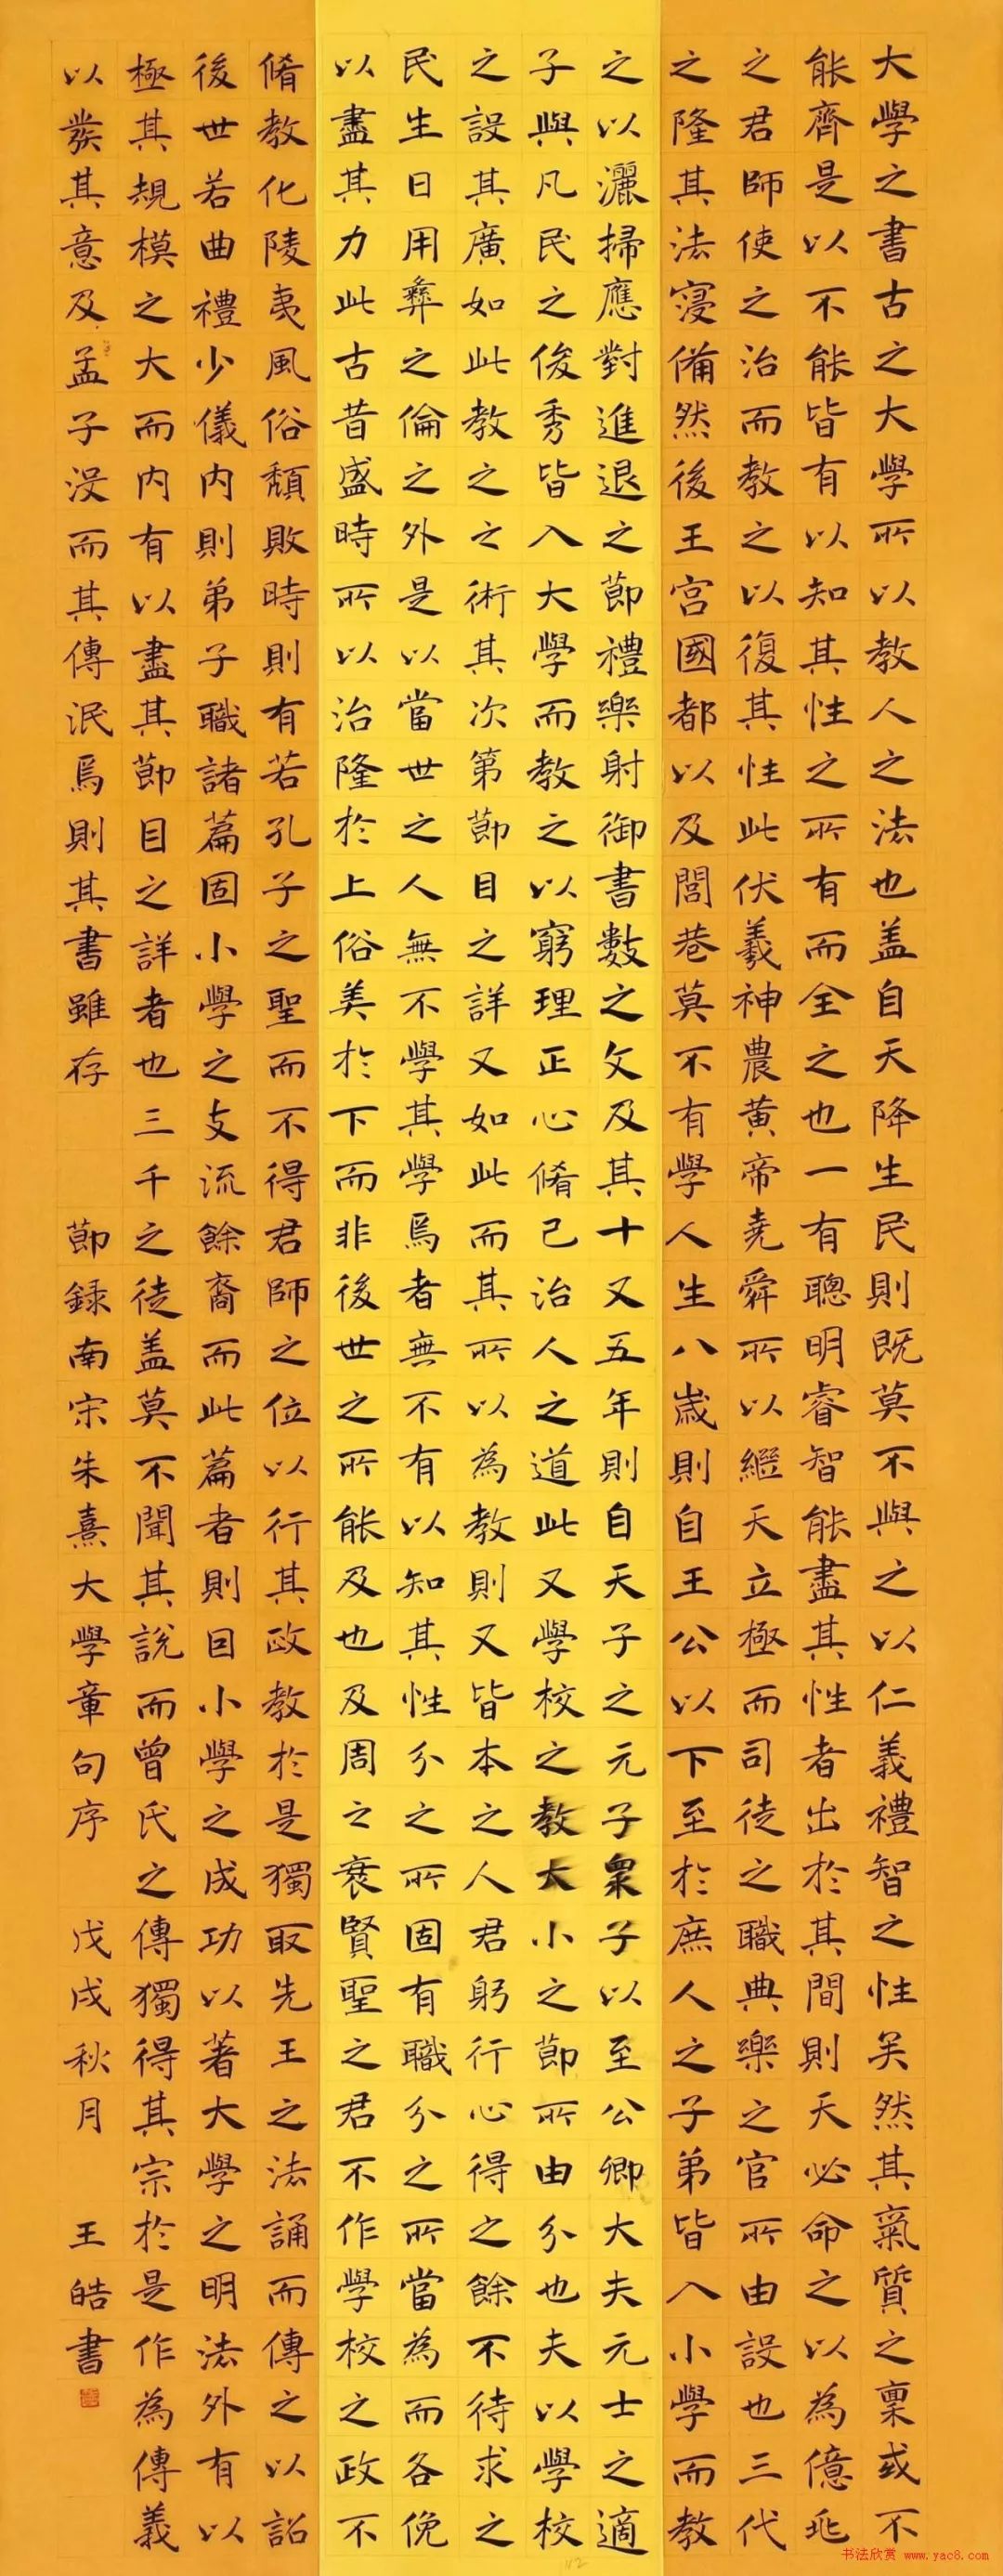 大學之書古之大學所以教人之法也盖自天降生民則既莫不與之以仁義禮智之性矣然其氣質之稟或不
能齊是以不能皆有以知其性之所有而全之也一有聰明睿智能盡其性者出於其間則天必命之以為億兆
之君師使之治而教之以復其性此伏羲神農黃帝堯舜所以繼天立極而司徒之職典樂之官所由設也三代
之隆其法寖備然後王宮國都以及閭巷莫不有學人生八歲則自王公以下至於庶人之子弟皆入小學而教
之以灑掃應對進退之節禮樂射御書數之文及其十又五年則自天子之元子衆子以至公卿大夫元士之適
子與凡民之俊秀皆入大學而教之以窮理正心脩己治人之道此又學校之教大小之節所由分也夫以學校
之設其廣如此教之之術其次第節目之詳又如此而其所以為教則又皆本之人君躬行心得之餘不待求之
民生日用彝之倫之外是以當世之人無不學其學焉者無不有以知其性分之所固有職分之所當為而各俛
以盡其力此古昔盛時所以治隆於上俗美於下而非後世之所能及也及周之衰賢聖之君不作學校之政不
脩教化陵夷風俗頹敗時則有若孔子之聖而不得君師之位以行其政教於是獨取先王之法誦而傳之以詔
後世若曲禮少儀內則弟子職諸篇固小學之支流餘裔而此篇者則因小學之成功以著大學之明法外有以
極其規模之大而內有以盡其節目之詳者也三千之徒盖莫不聞其說而曾氏之傳獨得其宗於是作為傳義
以發其意及孟子沒而其傳泯焉則其書雖存 節録南宋朱熹大學章句序 戊戌秋月 王皓書
书法欣赏 www.yac8.com